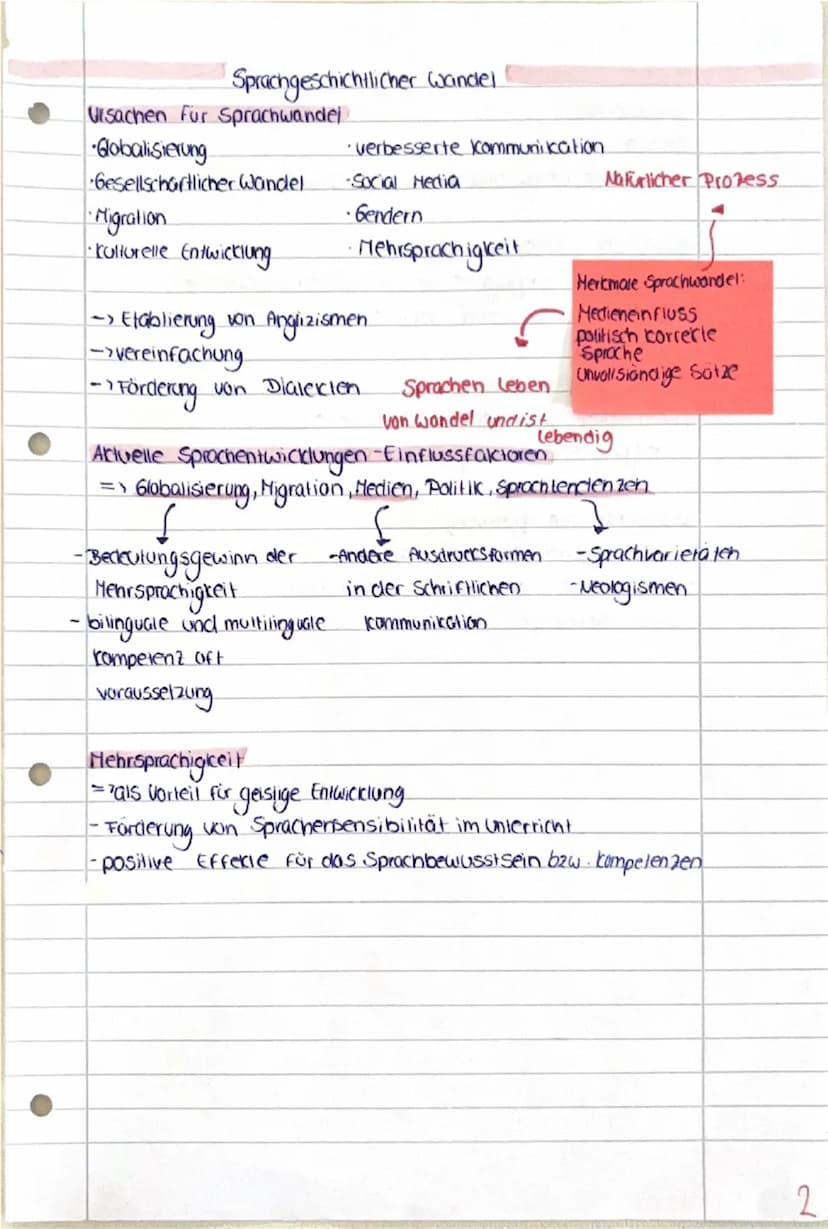 Sprachgeschichtlicher Wandel
Ursachen für Sprachwandel
·Globalisierung ·verbesserte Kommunikation
·Gesellschaftlicher Wandel ·Social Media
Natürlicher Prozess
·Migration ·Gendern
·kulturelle Entwicklung ·Mehrsprachigkeit
Merkmale Sprachwandel:
Medieneinfluss
politisch korrekte
Sprache
unvollständige Sätze
-> Etablierung von Anglizismen
-> Vereinfachung
-> Förderung von Dialekten
Sprachen leben
von Wandel und ist
lebendig
Aktuelle Sprachentwicklungen - Einflussfaktoren
=> Globalisierung, Migration, Medien, Politik, Sprachtendenzen
-Bedeutungsgewinn der -Andere Ausdrucksformen -Sprachvarietäten
Mehrsprachigkeit in der Schriftlichen -Neologismen
- bilinguale und multilinguale Kommunikation
Kompetenz oft
voraussetzung
Mehrsprachigkeit
=> als Vorteil für geistige Entwicklung
- Förderung von Sprachensensibilität im Unterricht
- positive Effekte für das Sprachbewusstsein bzw. Kompetenzen
2